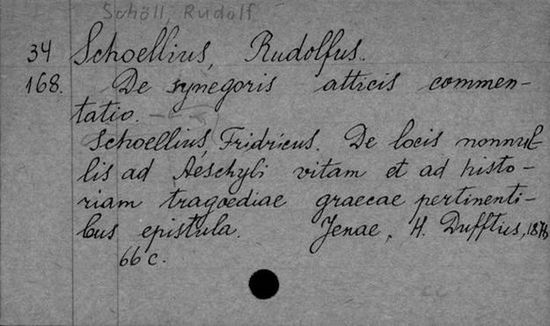 Schöll, Rudolf
34 Schoellius, Rudolfus.
168. De synegoris atticis commen-
tatio.
Schoellius, Fridricus. De locis nonnul-
lis ad Aeschyli vitam et ad histo-
riam tragoediae graecae pertinenti-
bus epistula. Jenae, H. Dufftius, 1876
66 c.